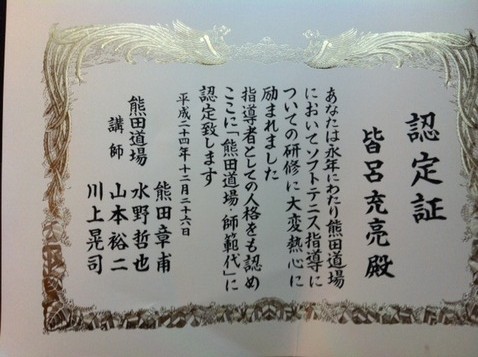 認定証
皆呂充亮 殿
あなたは永年にわたり熊田道場
においてソフトテニス指導に
ついての研修に大変熱心に
励まれました
指導者としての人格をも認め
ここに「熊田道場・師範代」に
認定致します
平成二十四年十二月二十六日
熊田道場
講師
熊田章甫
水野哲也
山本裕二
川上晃司